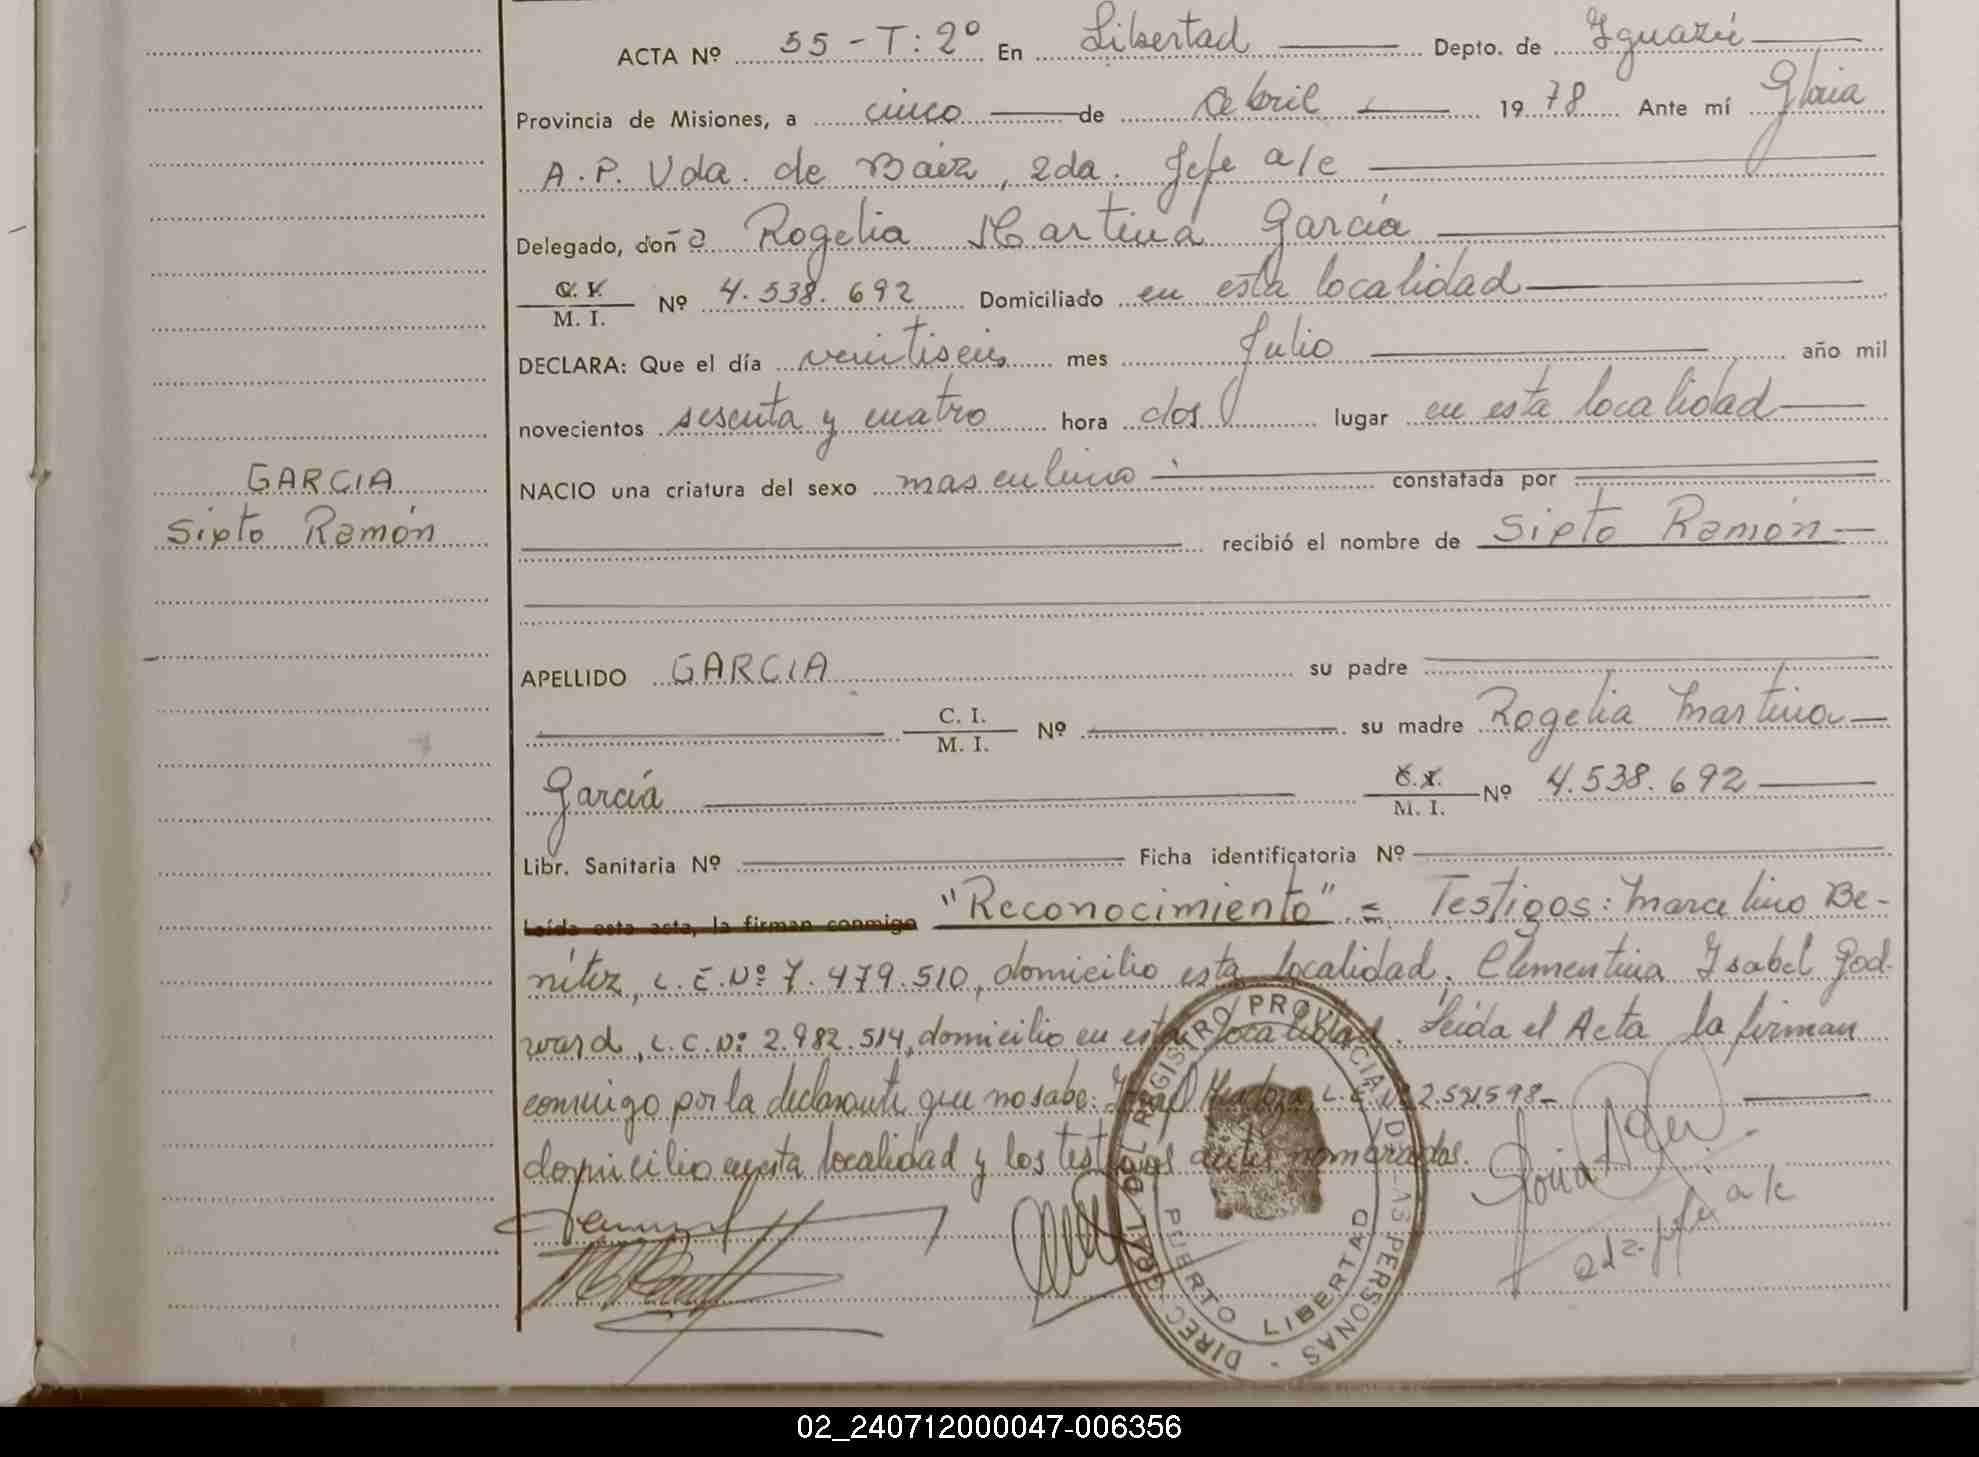 ACTA Nº 55 - T: 2º En Libertad Depto. de Iguazú
Provincia de Misiones, a cinco de Abril 1978 Ante mí Gloria
A. P. Vda. de Báez, 2da. Jefe a/c
Delegado, doña Rogelia Martina García
C. I. M. I. Nº 4.538.692 Domiciliado en esta localidad
DECLARA: Que el día veintiseis mes Julio año mil
novecientos sesenta y cuatro hora dos lugar en esta localidad
NACIO una criatura del sexo masculino constatada por
recibió el nombre de Sixto Ramón
GARCIA
Sixto Ramón
APELLIDO GARCIA su padre
C. I. M. I. Nº su madre Rogelia Martina
García C. I. M. I. Nº 4.538.692
Libr. Sanitaria Nº Ficha identificatoria Nº
Leída esta acta, la firman conmigo "Reconocimiento" = Testigos: Marcelino Be-
nítez, L.E. Nº 7.479.510, domicilio esta localidad, Clementina Isabel God-
ward, L.C. Nº 2.982.514, domicilio en esta localidad. Leída el Acta la firman
conmigo por la declarante que no sabe: L.E. Nº
domicilio en esta localidad y los testigos antes nombrados.
Gloria
2da. jefe a/c
DIREC. GRAL. DEL REGISTRO PROVINCIAL DE LAS PERSONAS -
PUERTO LIBERTAD
02_240712000047-006356